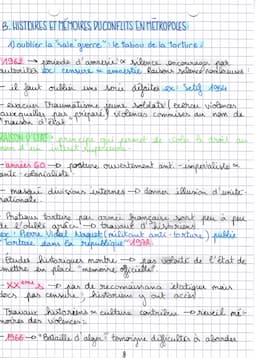 B. HISTOIRES ET MÉMOIRES DU CONFLITS EN METROPOLES
1) oublier la "sale guerre": le tabou de la torture:
1962 → période d'amnésie ∝ silence encouragé par
autorités ex: censure ∝ amnistie Raisons silence nombreuses:
- il faut oublier une série défaites ex: 1954
- évacuer traumatisme jeune soldats (exercer violences
auxquelles pas préparé) violences commises au nom de
"raison d'état"
RAISON D'ÉTAT: principe qui permet de violer le droit au
nom d'un intérêt supérieur.
- années 60 → posture ouvertement anti-impérialiste ∝
anti-colonialiste
- masqué divisions internes → donner illusion d'unité
nationale.
- Pratique torture par armée française sort peu à peu
de l'oubli grâce → travaux d'historiens
ex: Pierre Vidal Naquet (militant anti-torture) publie
"Torture dans la république" 1972.
- Études historiques montre → pas volonté de l'état de
mettre en place "mémoire officielle".
- XXème s → pas de reconnaissance étatique mais
docs pas censuré; historiens y ont accès
- Travaux historiens ∝ culture contribue → réveil mé-
moires des violences:
- 1966 → "Bataille d'alger" témoigne difficultés à aborder
8